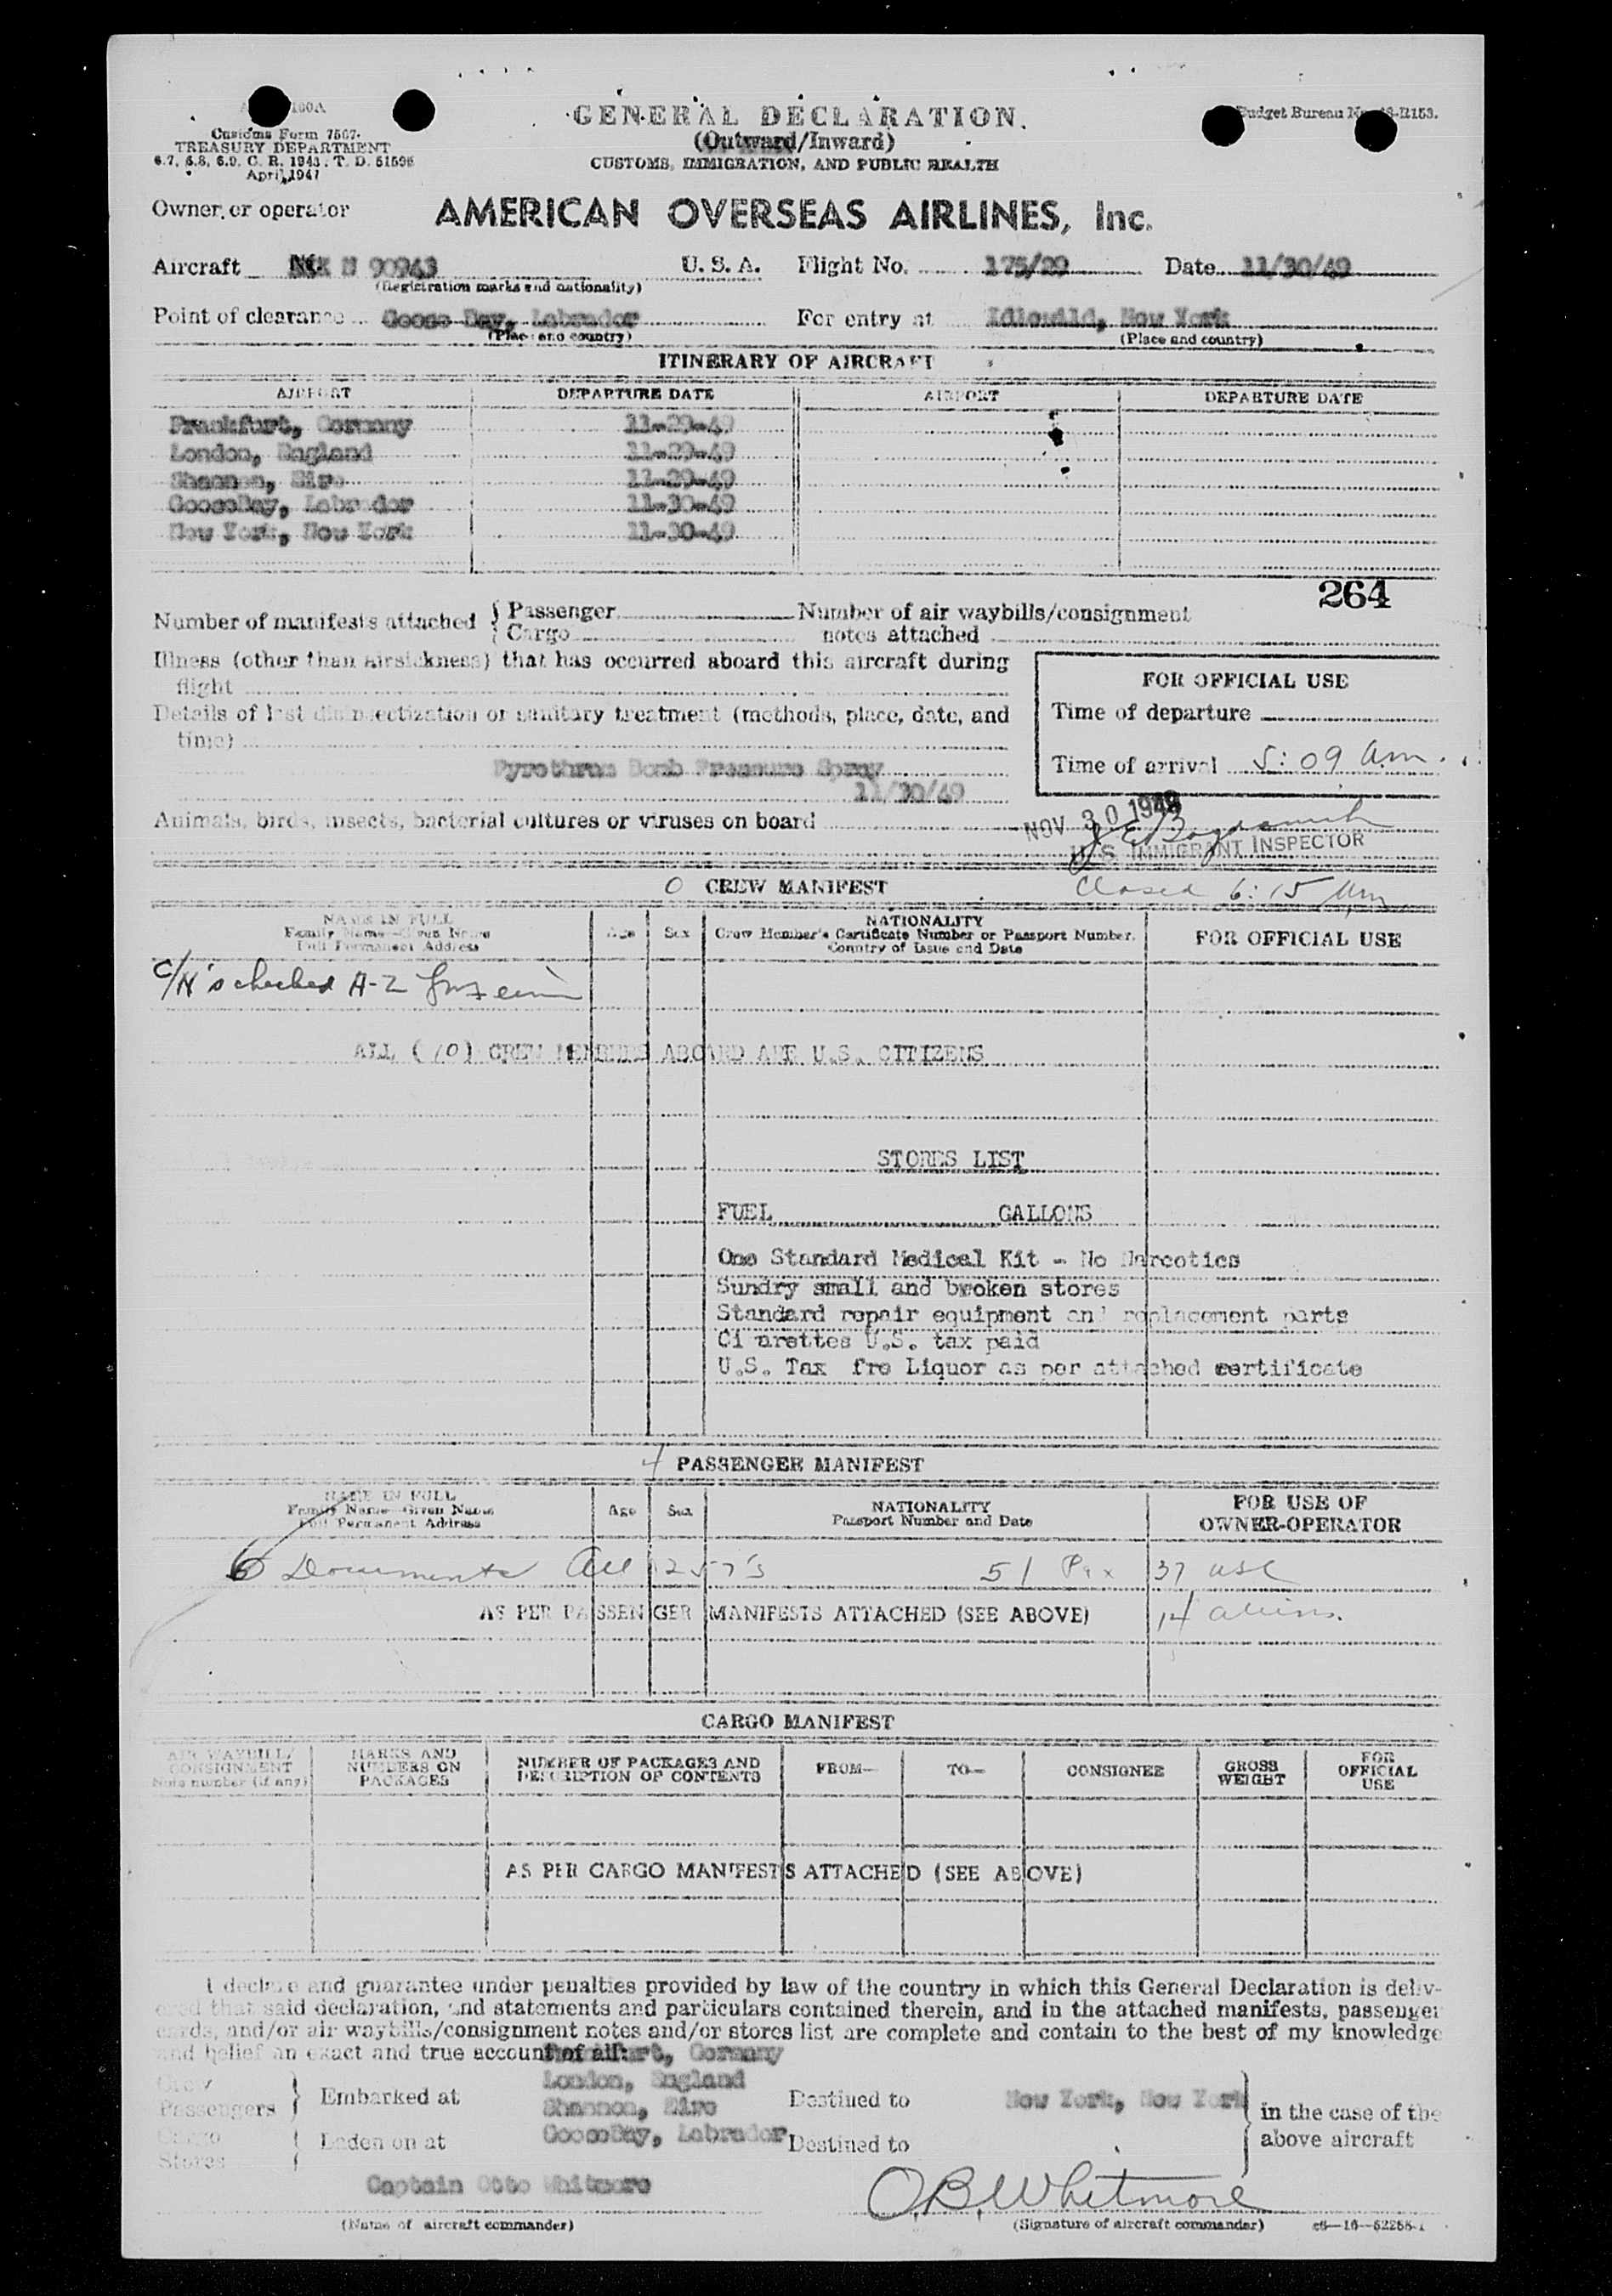 GENERAL DECLARATION
(Outward/Inward)
CUSTOMS, IMMIGRATION, AND PUBLIC HEALTH
Customs Form 7507
TREASURY DEPARTMENT
6.7, 6.8, 6.9, C. R. 1943. T. D. 51595
April 1947
Budget Bureau No.
Owner or operator AMERICAN OVERSEAS AIRLINES, Inc.
Aircraft N 90943 U. S. A. Flight No. 175/29 Date 11/30/49
(Registration marks and nationality)
Point of clearance Goose Bay, Labrador For entry at Idlewild, New York
(Place and country) (Place and country)
ITINERARY OF AIRCRAFT
AIRPORT DEPARTURE DATE AIRPORT DEPARTURE DATE
Frankfurt, Germany 11-29-49
London, England 11-29-49
Shannon, Eire 11-29-49
GooseBay, Labrador 11-30-49
New York, New York 11-30-49
264
Number of manifests attached { Passenger Number of air waybills/consignment
Cargo notes attached
Illness (other than airsickness) that has occurred aboard this aircraft during
flight
Details of last disinsectization or sanitary treatment (methods, place, date, and
time)
Pyrethrum Bomb Pressure Spray
11/30/49
FOR OFFICIAL USE
Time of departure
Time of arrival 5:09 am.
Animals, birds, insects, bacterial cultures or viruses on board
NOV 30 1949
U.S. IMMIGRANT INSPECTOR
0 CREW MANIFEST Closed 6:15 am
NAME IN FULL
Family Name—Given Name
Full Permanent Address
Age Sex
NATIONALITY
Crew Member's Certificate Number or Passport Number.
Country of Issue and Date
FOR OFFICIAL USE
C/N's checked A-Z
ALL (10) CREW MEMBERS ABOARD ARE U.S. CITIZENS
STORES LIST
FUEL GALLONS
One Standard Medical Kit - No Narcotics
Sundry small and broken stores
Standard repair equipment and replacement parts
Ci arettes U.S. tax paid
U.S. Tax fre Liquor as per attached certificate
4 PASSENGER MANIFEST
NAME IN FULL
Family Name—Given Name
Full Permanent Address
Age Sex
NATIONALITY
Passport Number and Date
FOR USE OF
OWNER-OPERATOR
6 Documents All 257's 51 Pax 37 USC
AS PER PASSENGER MANIFESTS ATTACHED (SEE ABOVE) 14 aliens.
CARGO MANIFEST
AIR WAYBILL/
CONSIGNMENT
Note number (if any)
MARKS AND
NUMBERS ON
PACKAGES
NUMBER OF PACKAGES AND
DESCRIPTION OF CONTENTS
FROM— TO— CONSIGNEE
GROSS
WEIGHT
FOR
OFFICIAL
USE
AS PER CARGO MANIFESTS ATTACHED (SEE ABOVE)
I declare and guarantee under penalties provided by law of the country in which this General Declaration is deliv-
ered that said declaration, and statements and particulars contained therein, and in the attached manifests, passenger
cards, and/or air waybills/consignment notes and/or stores list are complete and contain to the best of my knowledge
and belief an exact and true account of all:
Frankfurt, Germany
London, England
Crew
Passengers } Embarked at Shannon, Eire Destined to New York, New York
in the case of the
above aircraft
Cargo
Stores { Laden on at GooseBay, Labrador Destined to
Captain Otto Whitmore O.B. Whitmore
(Name of aircraft commander) (Signature of aircraft commander) c6—16—52255-1